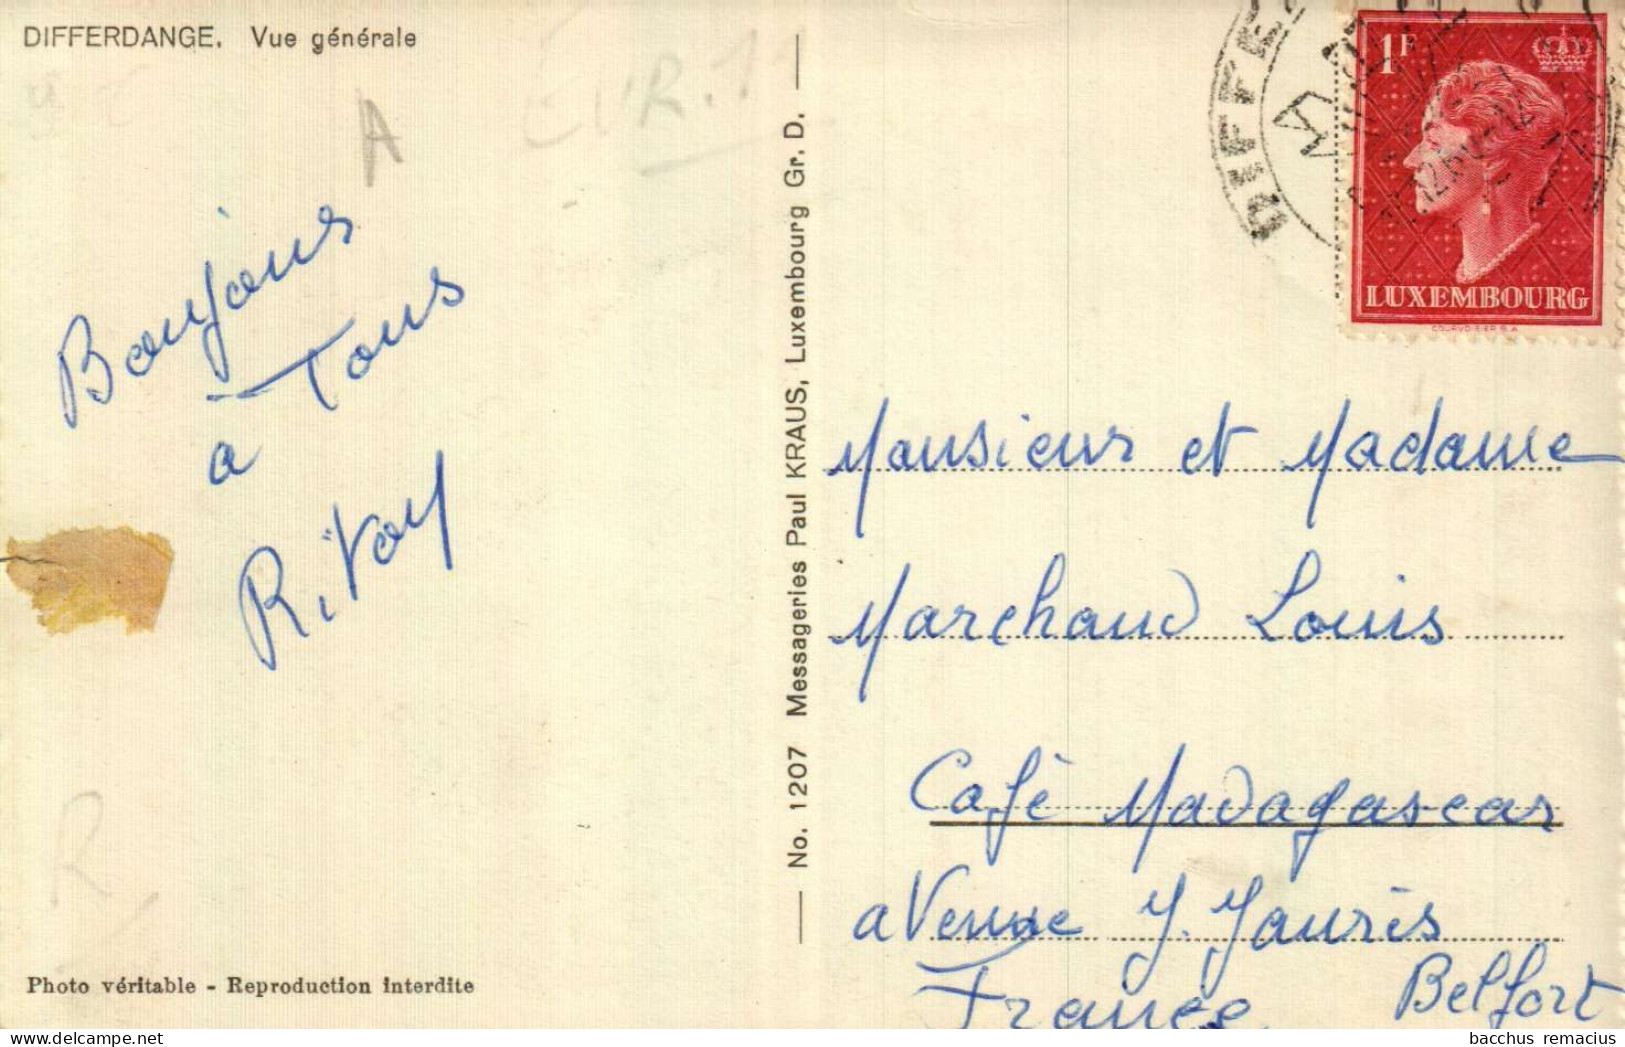 DIFFERDANGE. Vue générale
Bonjour
à Tous
a
R. Vay
Photo véritable - Reproduction interdite
No. 1207 Messageries Paul KRAUS, Luxembourg Gr. D.
A
EUR.
R
DIFFE
1F
LUXEMBOURG
COURVOISIER S.A
Monsieur et Madame
Marchand Louis
Café Madagascar
avenue J. Jaurès
France Belfort
bacchus remacius